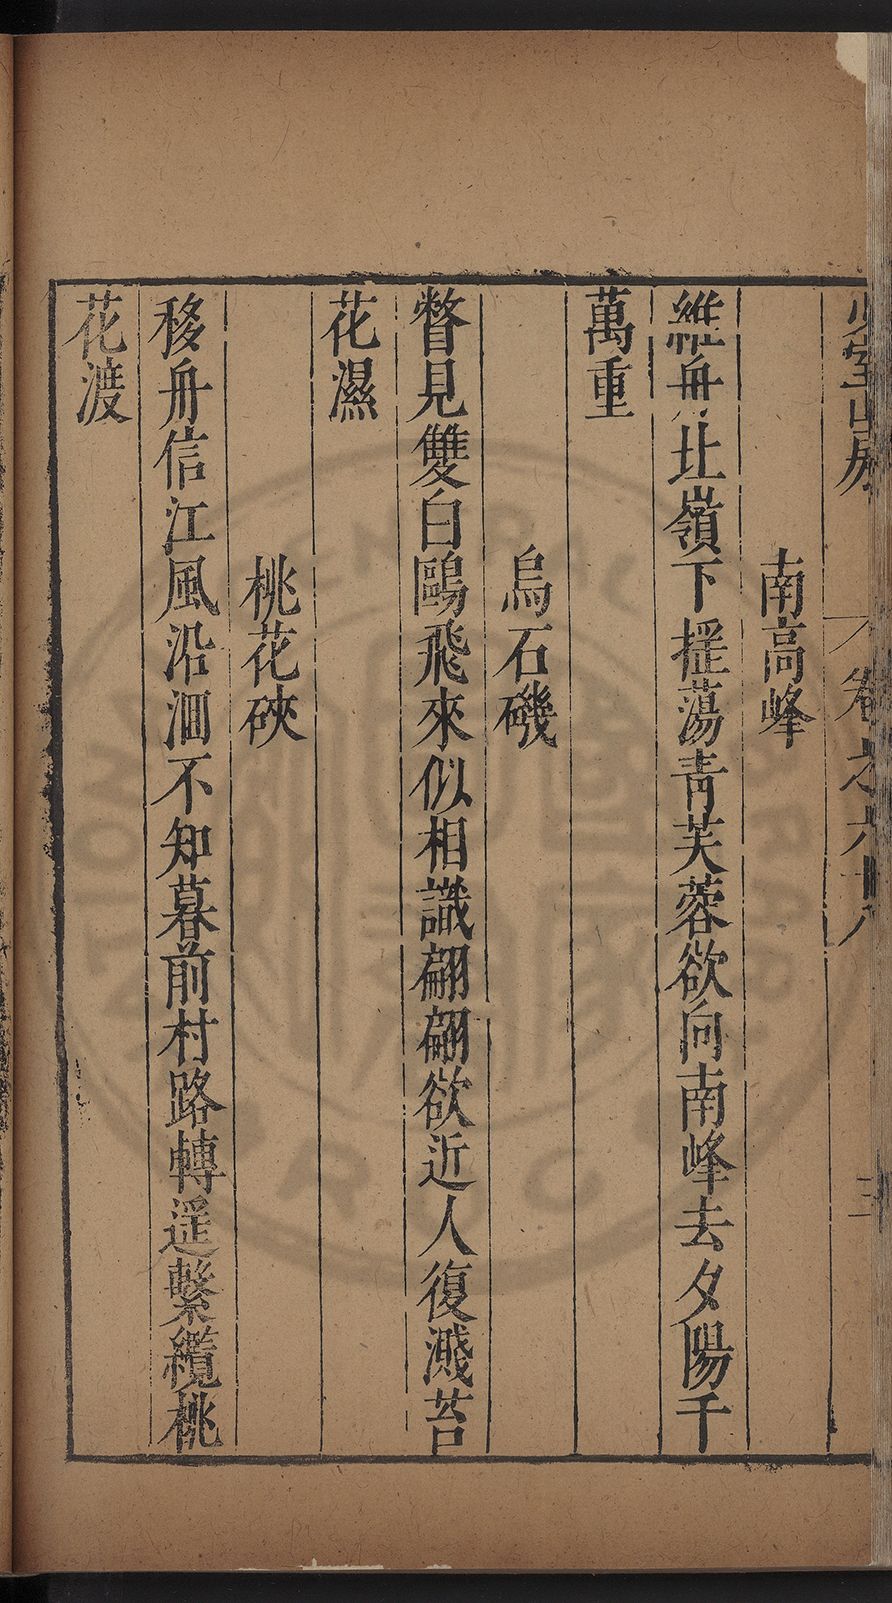 少室山房
卷之六十八
三
南高峰
維舟北嶺下搖蕩青芙蓉欲向南峰去夕陽千
萬重
烏石磯
瞥見雙白鷗飛來似相識翩翩欲近人復濺苔
花濕
桃花硤
移舟信江風沿洄不知暮前村路轉遥繫纜桃
花渡